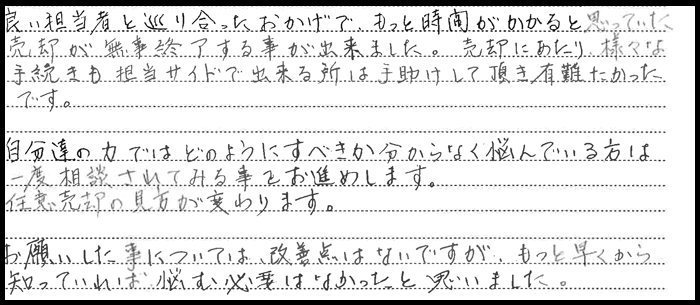 良い担当者と巡り合ったおかげで、もっと時間がかかると思っていた
売却が無事終了する事が出来ました。売却にあたり、様々な
手続きも担当サイドで出来る所は手助けして頂き有難たかった
です。
自分達の力ではどのようにすべきか分からなく悩んでいる方は
一度相談されてみる事をお進めします。
任意売却の見方が変わります。
お願いした事については、改善点はないですが、もっと早くから
知っていれば、悩む必要はなかったと思いました。